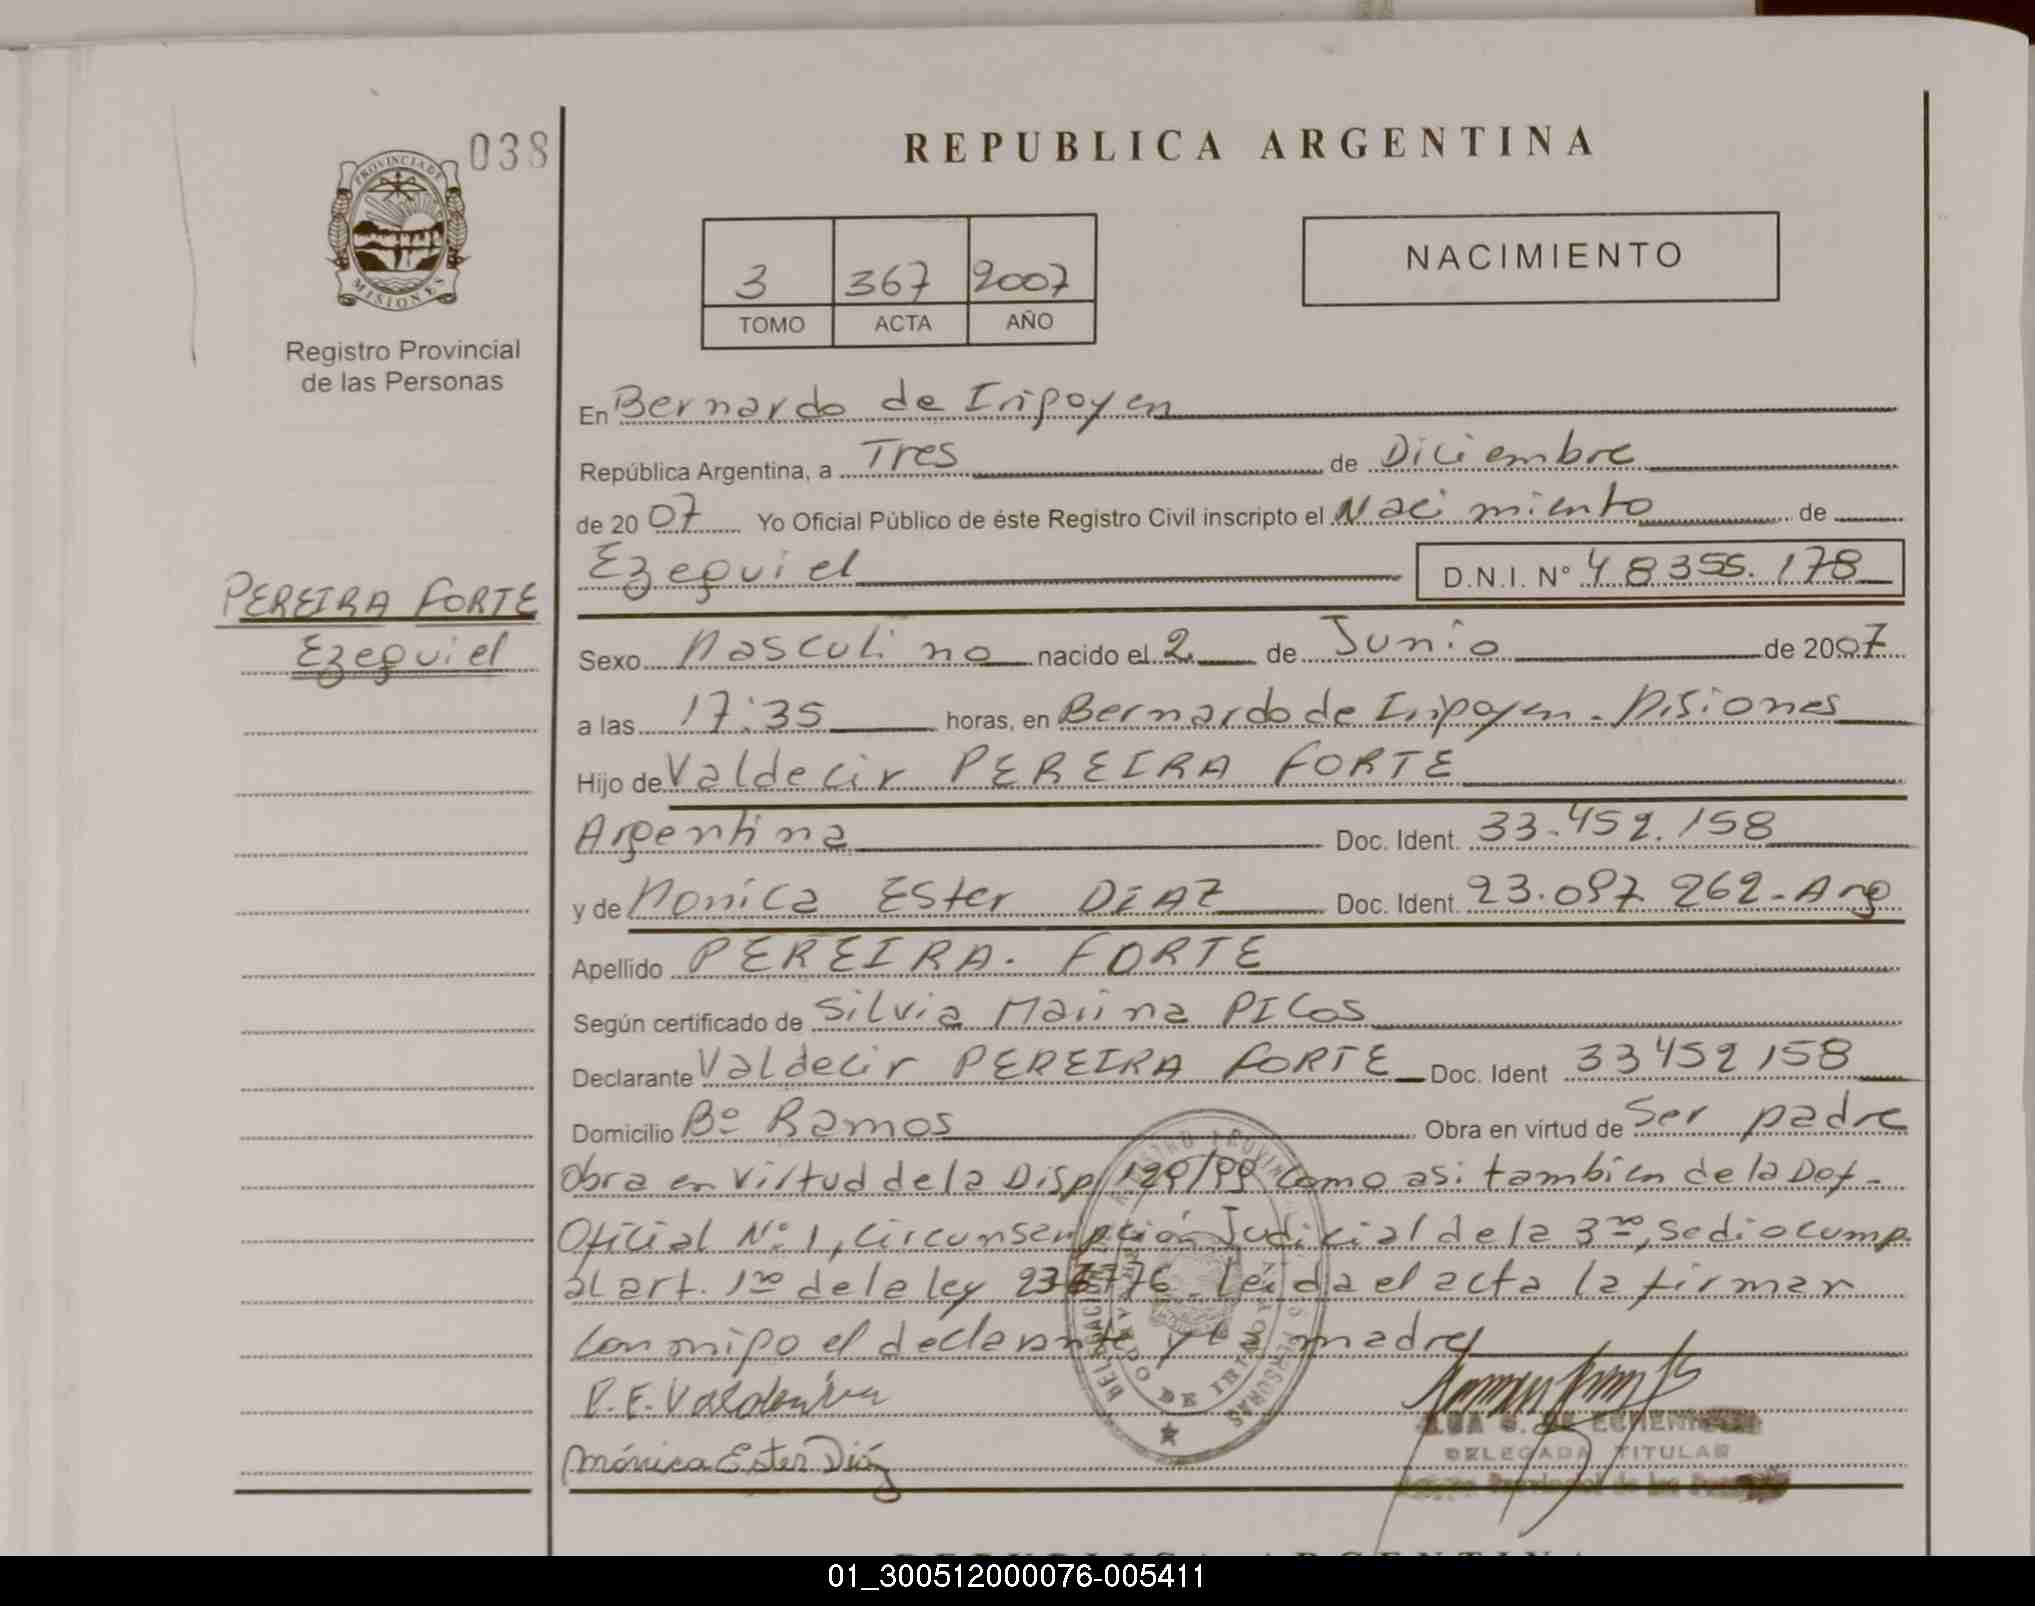 038
PROVINCIA DE
MISIONES
Registro Provincial
de las Personas
PEREIRA FORTE
Ezequiel
REPUBLICA ARGENTINA
3 367 2007
TOMO ACTA AÑO
NACIMIENTO
En Bernardo de Irigoyen
República Argentina, a Tres de Diciembre
de 2007 Yo Oficial Público de éste Registro Civil inscripto el Nacimiento de
Ezequiel D.N.I. N° 48355.178
Sexo Masculino nacido el 2 de Junio de 2007
a las 17:35 horas, en Bernardo de Irigoyen - Misiones
Hijo de Valdecir PEREIRA FORTE
Argentina Doc. Ident. 33.452.158
y de Monica Ester DIAZ Doc. Ident. 23.097 262 - Arg
Apellido PEREIRA. FORTE
Según certificado de Silvia Marina PICOS
Declarante Valdecir PEREIRA FORTE Doc. Ident 33452158
Domicilio Bº Ramos Obra en virtud de Ser padre
obra en virtud de la Disp 120/99 como asi tambien de la Def.
Oficial Nº 1, circunscripción Judicial de la 3ra, se dio cump.
al art. 1ro de la ley Leida el acta la firman
conmigo el declarante y la madre
P. F. Valdecir
Mónica Ester Diáz
DE ECHENIQUE
DELEGADA TITULAR
Provincial de las Personas
01_300512000076-005411